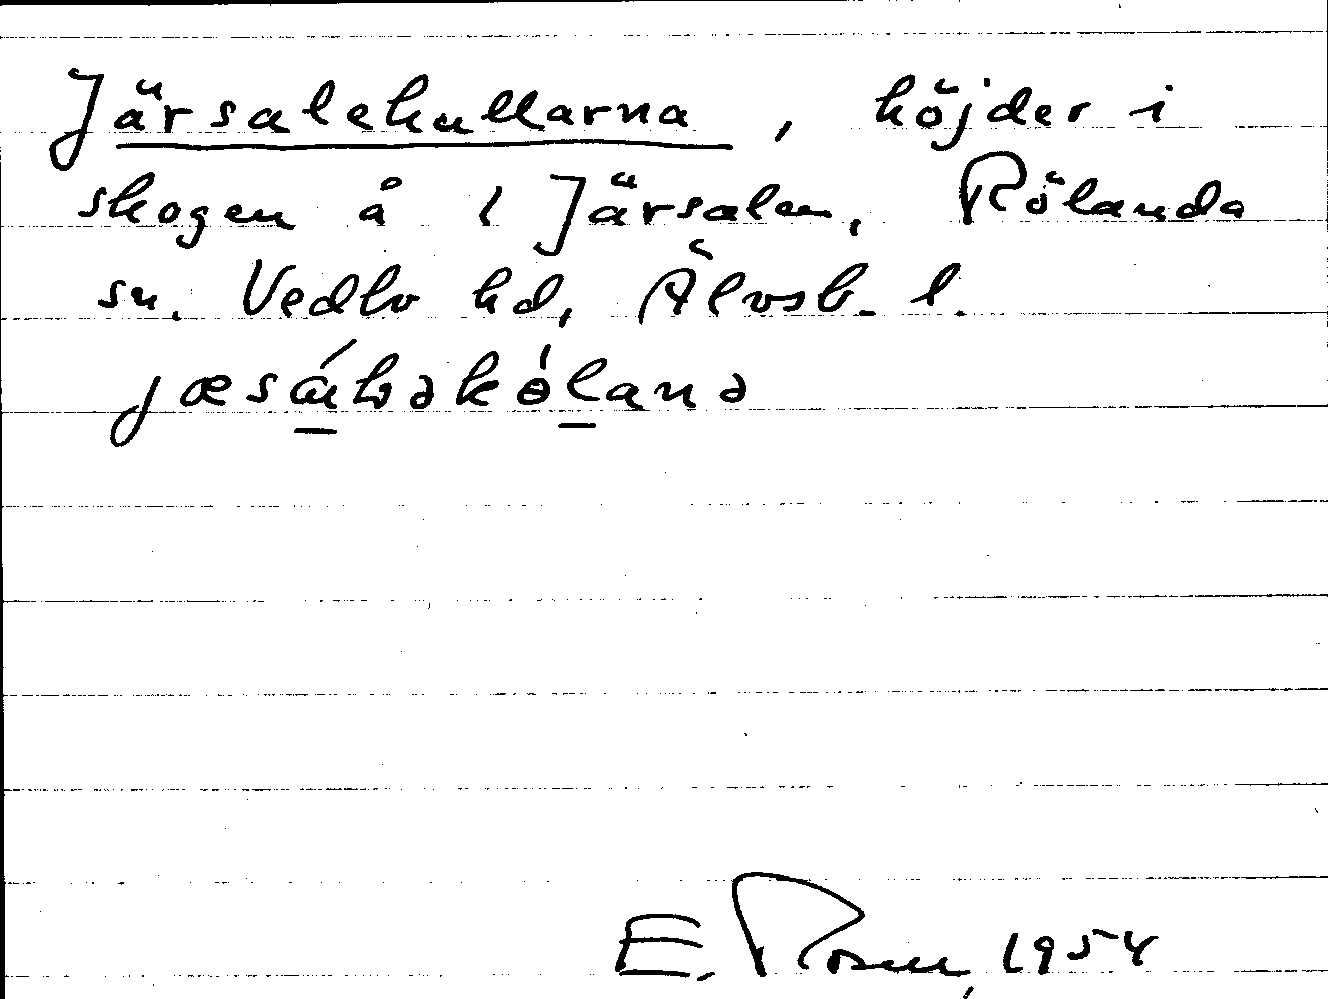 Järsalehullarna, höjder i
skogen å 1 Järsalen, Rölanda
sn. Vedbo hd, Älvsb. l.
E. Rosen, 1954